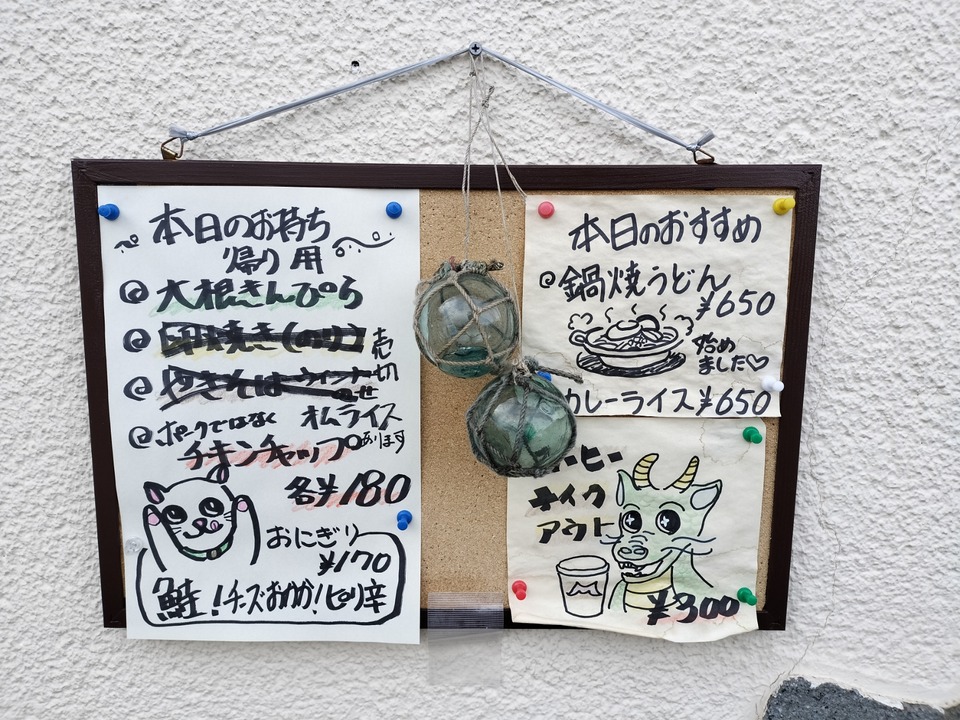 本日のお持ち
帰り用
@大根きんぴら
@卵焼き(のり)
@やきそばウィンナー
のせ
売
切
@ポークではなく オムライス
あります
チキンチャップ
各¥180
おにぎり
¥170
鮭!チーズおかか!ピリ辛
本日のおすすめ
@鍋焼うどん
¥650
始め
ました♡
カレーライス¥650
ーヒー
テイク
アウト
¥300